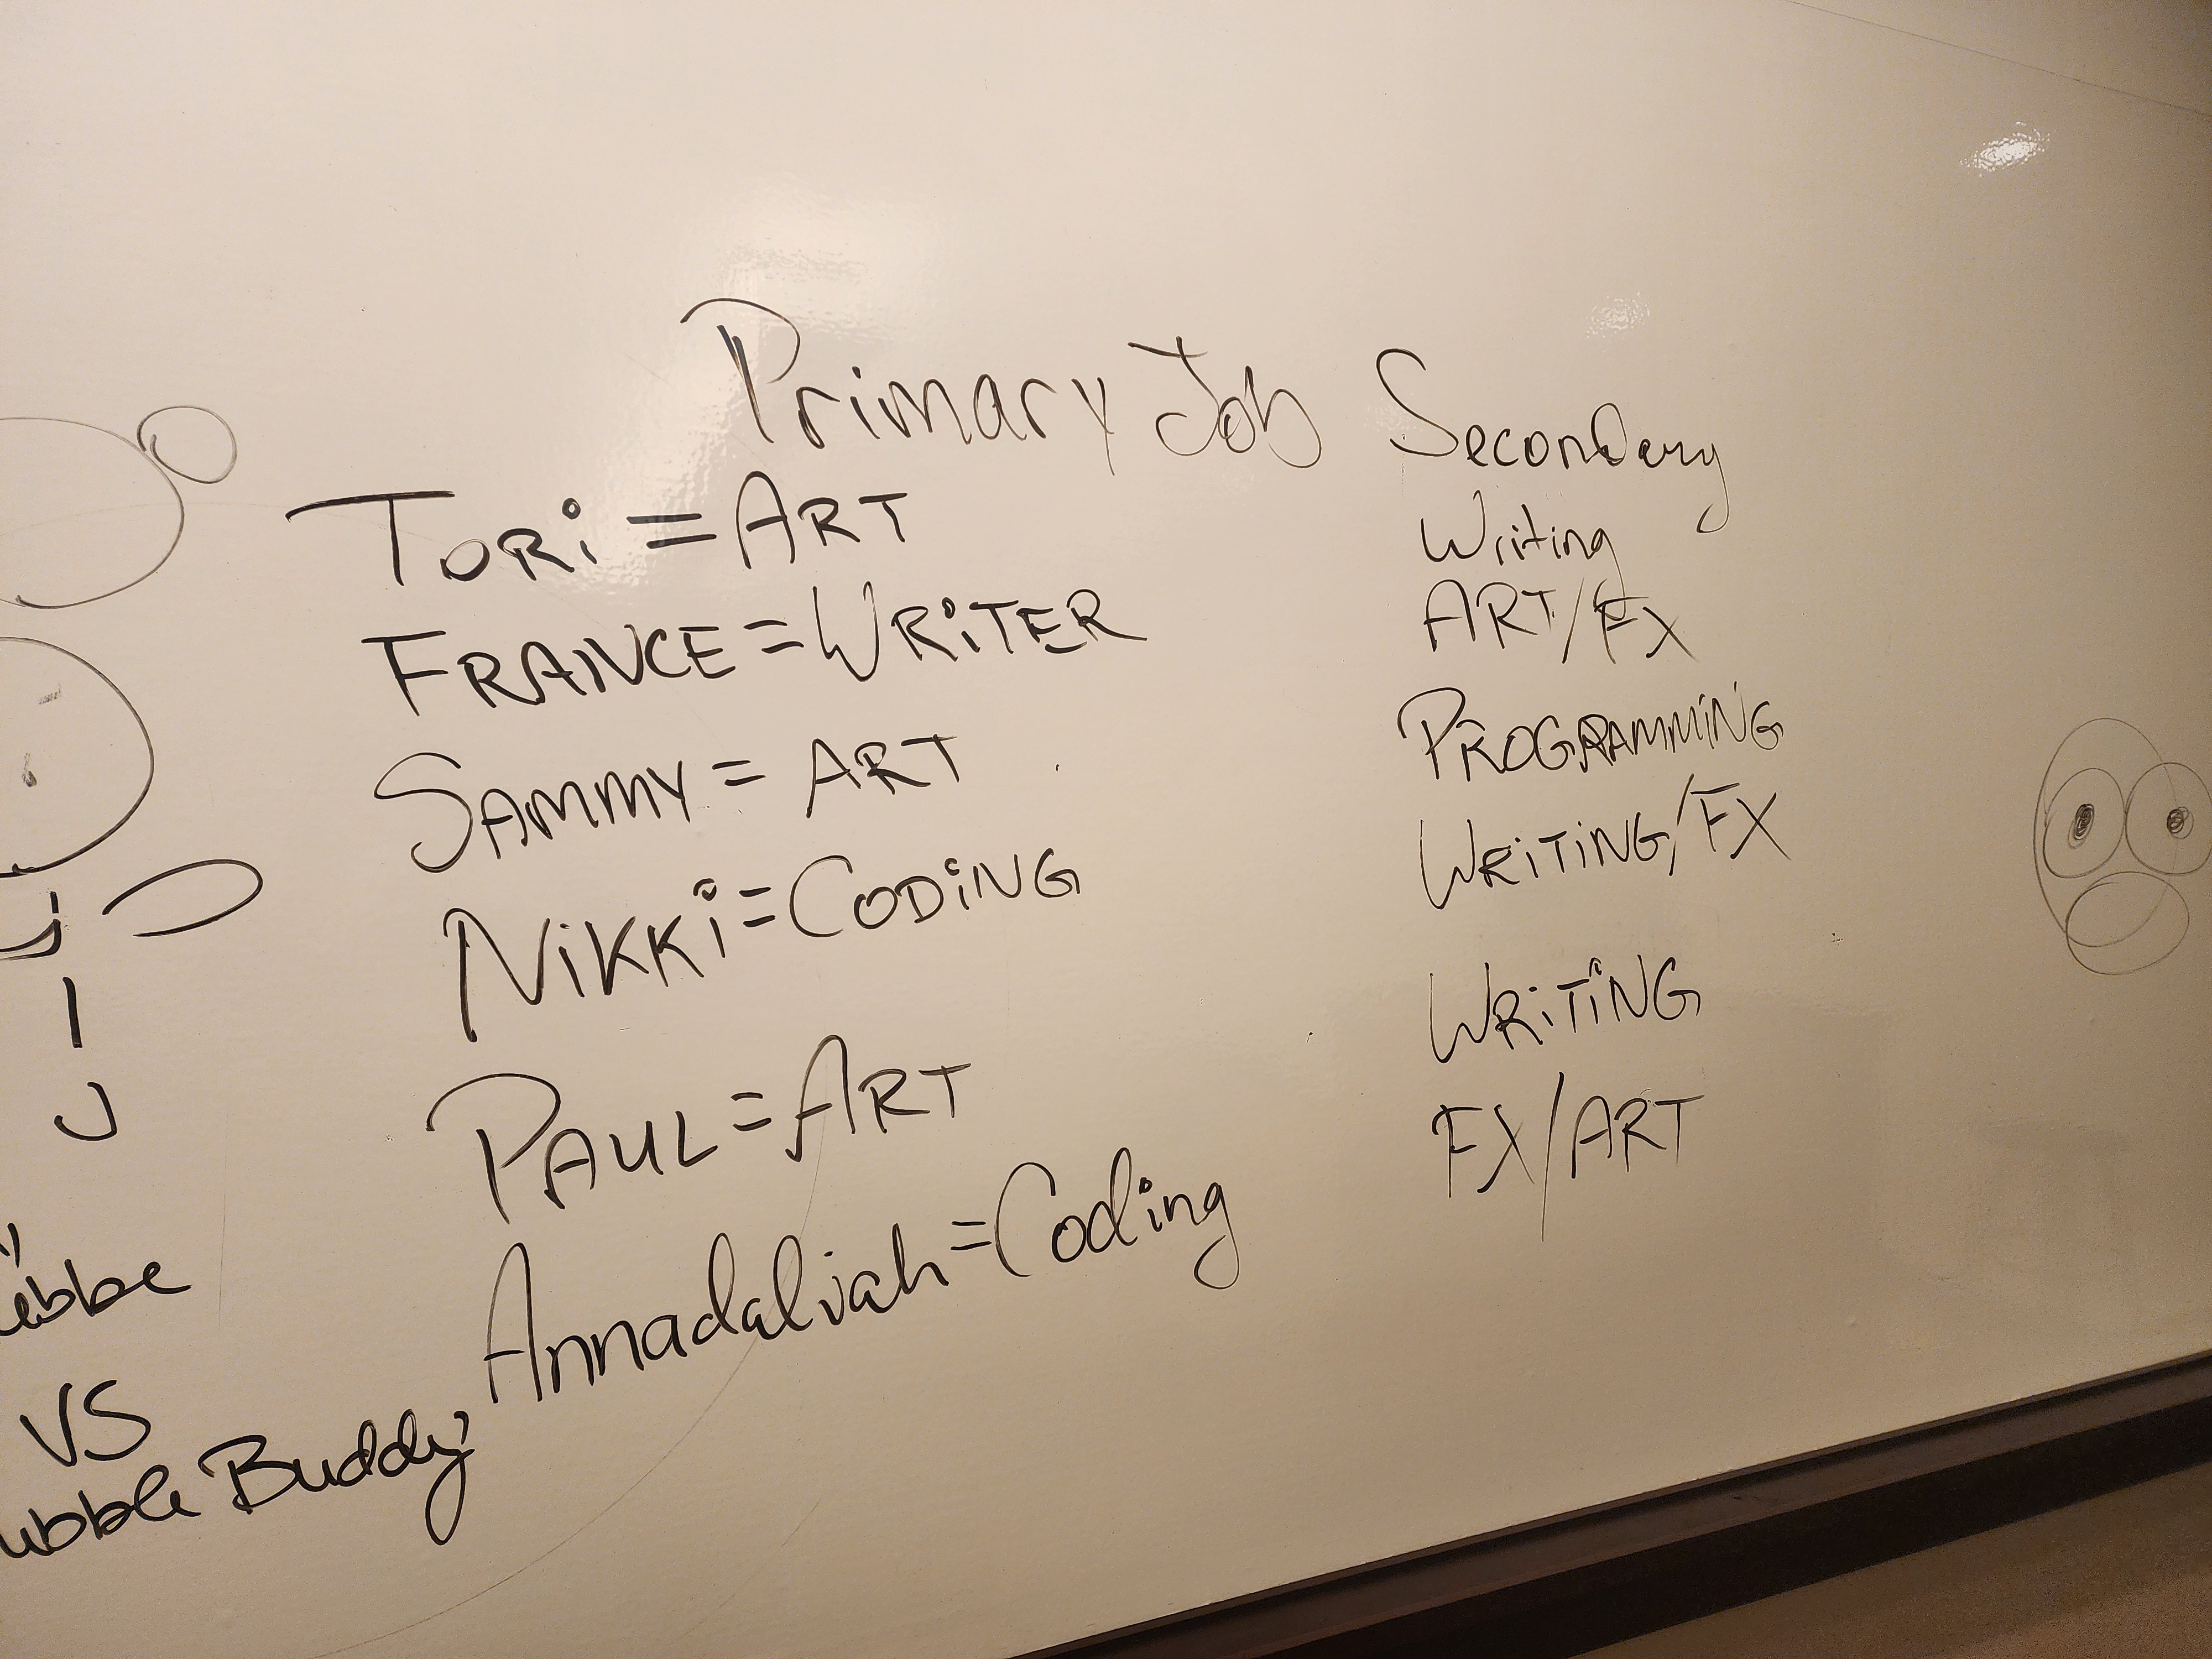 Primary Job Secondary
Tori = ART Writing
FRANCE = WRiTER ART/FX
SAMMY = ART PROGRAMMiNG
NiKKi = CODiNG WRiTiNG/FX
PAUL = ART WRiTiNG
Annadaliah = Coding FX/ART
VS
Buddy